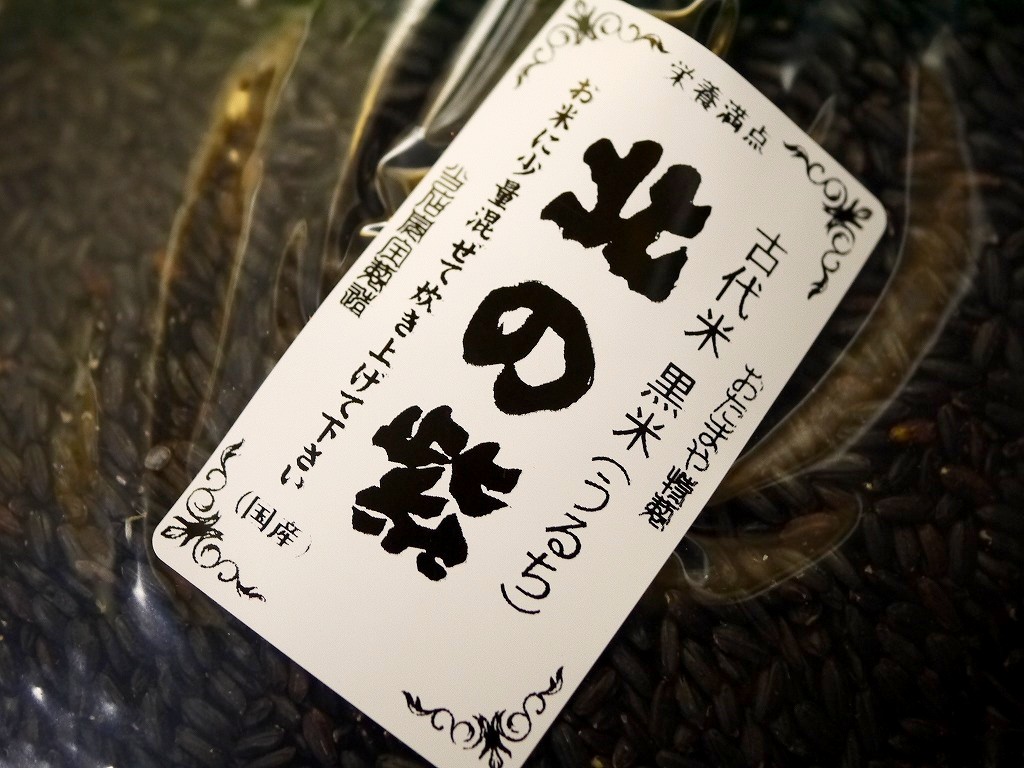 栄養満点
古代米 黒米(うるち)
おたまや
北の紫
お米に少量混ぜて炊き上げて下さい
(国産)